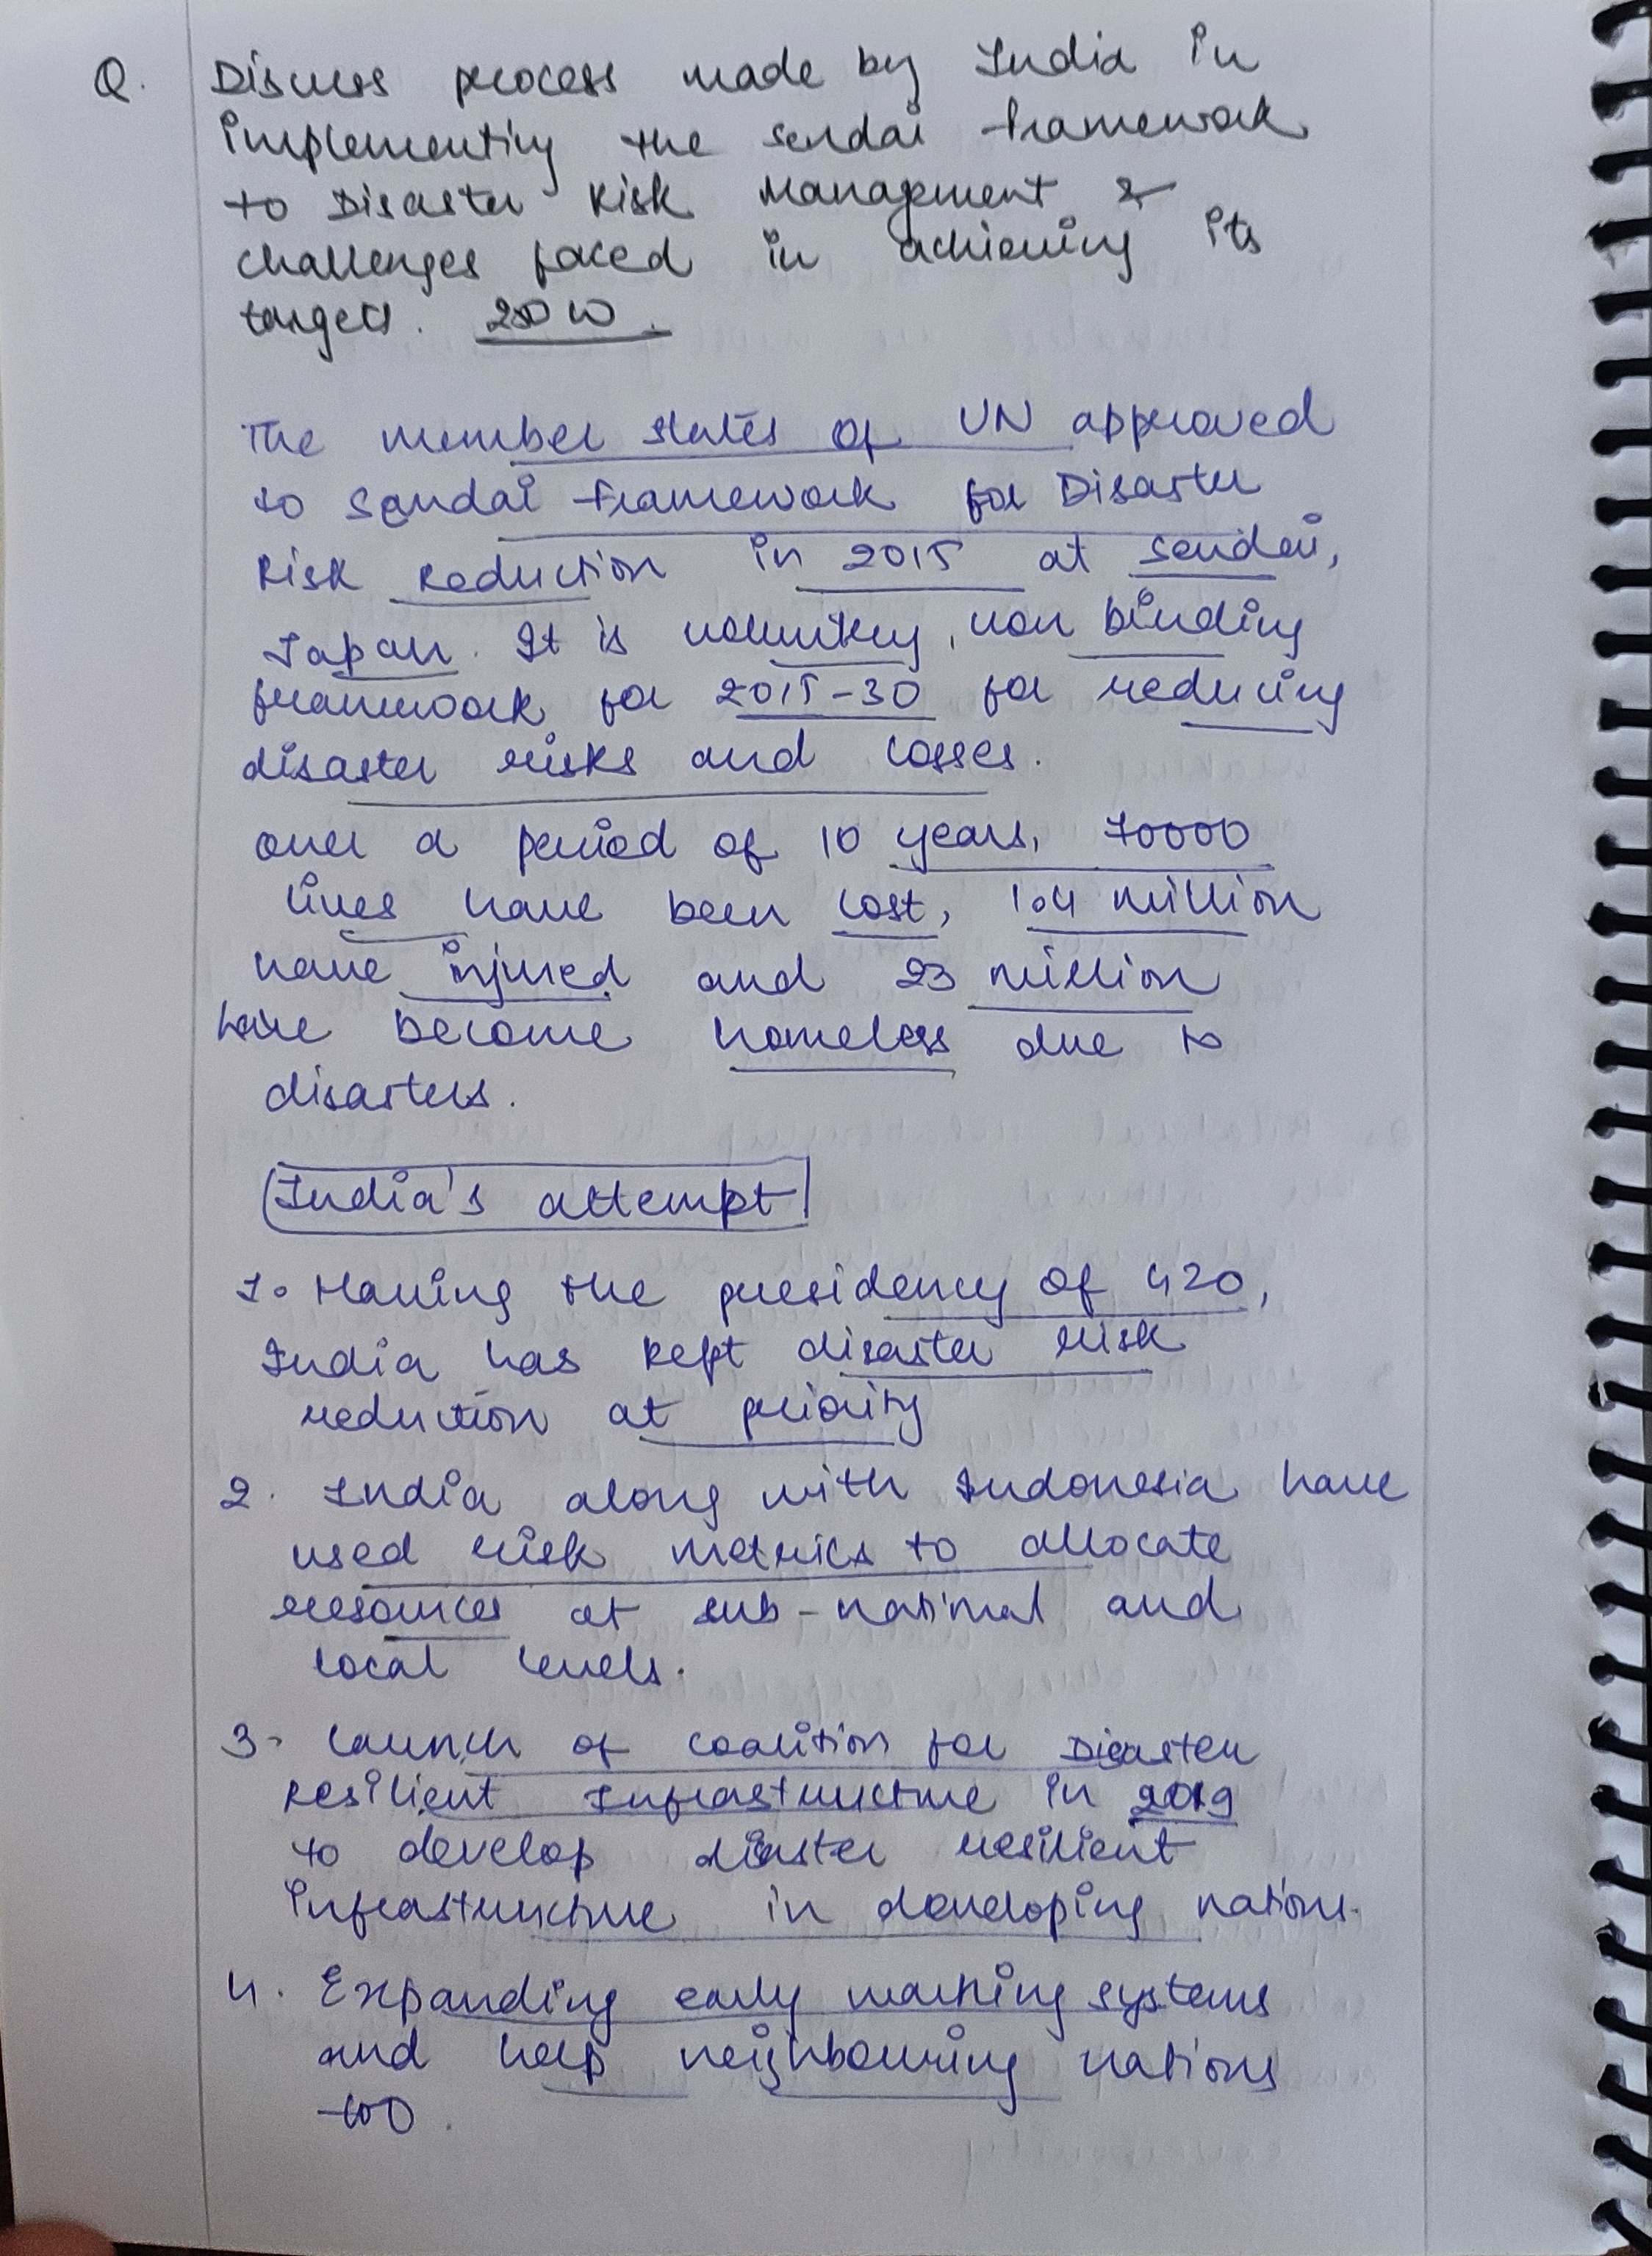 Q. Discuss process made by India in
implementing the Sendai framework
to Disaster Risk Management &
challenges faced in achieving its
targets. 250 W.
The member states of UN approved
to Sendai framework for Disaster
Risk Reduction in 2015 at Sendai,
Japan. It is voluntary, non binding
framework for 2015-30 for reducing
disaster risks and losses.
over a period of 10 years, 70000
lives have been lost, 1.4 million
have injured and 23 million
have become homeless due to
disasters.
India's attempt
1. Having the presidency of G20,
India has kept disaster risk
reduction at priority
2. India along with Indonesia have
used risk metrics to allocate
resources at sub-national and
local levels.
3. launch of coalition for Disaster
Resilient Infrastructure in 2019
to develop disaster resilient
infrastructure in developing nations.
4. Expanding early warning systems
and help neighbouring nations
too.